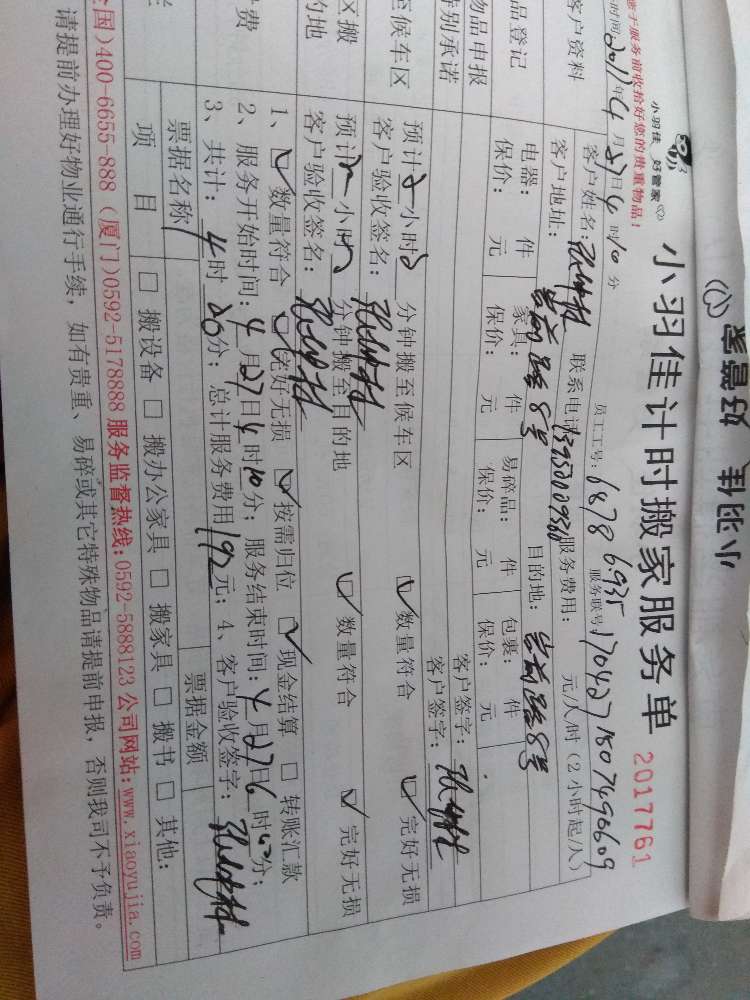 好管家
小羽佳
小羽佳 好管家
小羽佳计时搬家服务单
2017761
您于服务前收拾好您的贵重物品！
时间：2017年4月27日4时10分
员工工号：1878 6935
服务联号：1704271507490609
客户资料
客户姓名：
联系电话：
服务费用： 元/人/时（2小时起/人）
客户地址：岩前路8号
目的地：岩前路8号
品登记
电器： 件
家具： 件
易碎品： 件
包裹： 件
客户签字：
保价： 元
保价： 元
保价： 元
保价： 元
物品申报
特别承诺
客户签字：
至候车区
预计2小时 分钟搬至候车区
☑数量符合 ☑完好无损
客户验收签名：
区搬
的地
预计2小时 分钟搬至目的地
☑数量符合 ☑完好无损
客户验收签名：
费
1、☑数量符合 ☑完好无损 ☑按需归位 ☑现金结算 □转账汇款
2、服务开始时间：4月27日4时10分；服务结束时间：4月27日6时 分；
3、共计：4时20分；总计服务费用192元；4、客户验收签字：
票据名称
票据金额
项目
□搬设备 □搬办公家具 □搬家具 □搬书 □其他：
全国)400-6655-888 (厦门)0592-5178888 服务监督热线:0592-5888123 公司网站:www.xiaoyujia.com
请提前办理好物业通行手续，如有贵重、易碎或其它特殊物品请提前申报，否则我司不予负责。